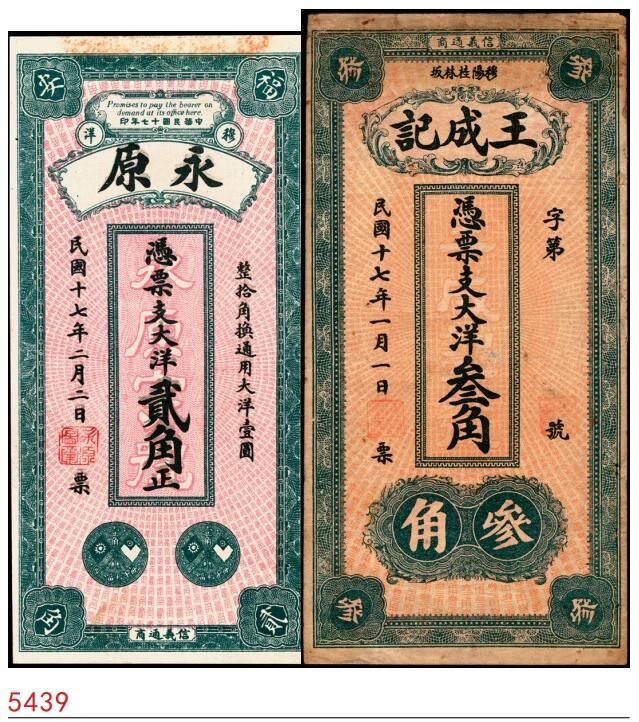 福安
Promises to pay the bearer on
demand at its office here.
中華民國十七年印
穆洋
永原
整拾角換通用大洋壹圓
憑票支大洋貳角正
民國十七年二月二日
票
信義通商
貳角
信義通商
穆陽桂林坂
王成記
字第
號
憑票支大洋叁角
民國十七年一月一日
票
參角
5439